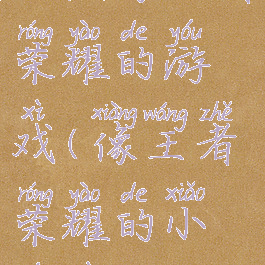 róng yào de yóu
荣耀的游
xì xiàng wáng zhě
戏(像王者
róng yào de xiǎo
荣耀的小